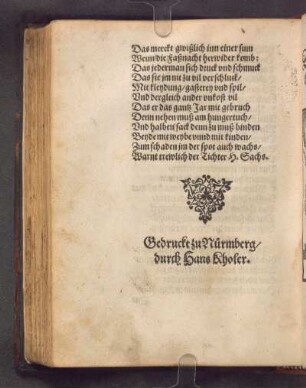 Das merckt gwißlich inn einer sum
Wenn die Faßnacht herwider komb:
Das jederman sich druck vnd schmuck
Das sie jm nit zu vil verschluck/
Mit kleydung/gasterey vnd spil/
Vnd dergleich ander vnkost vil
Das er das gantz Jar mit gebruch
Denn nehen muß am hungertuch/
Vnd halben sack denn zu muß binden
Beyde mit weybe vnnd mit kinden/
Zum schaden jm der spot auch wachs/
Warnt trewlich der Tichter H. Sachs.
Gedruckt zu Nürmberg/
durch Hans Kholer.